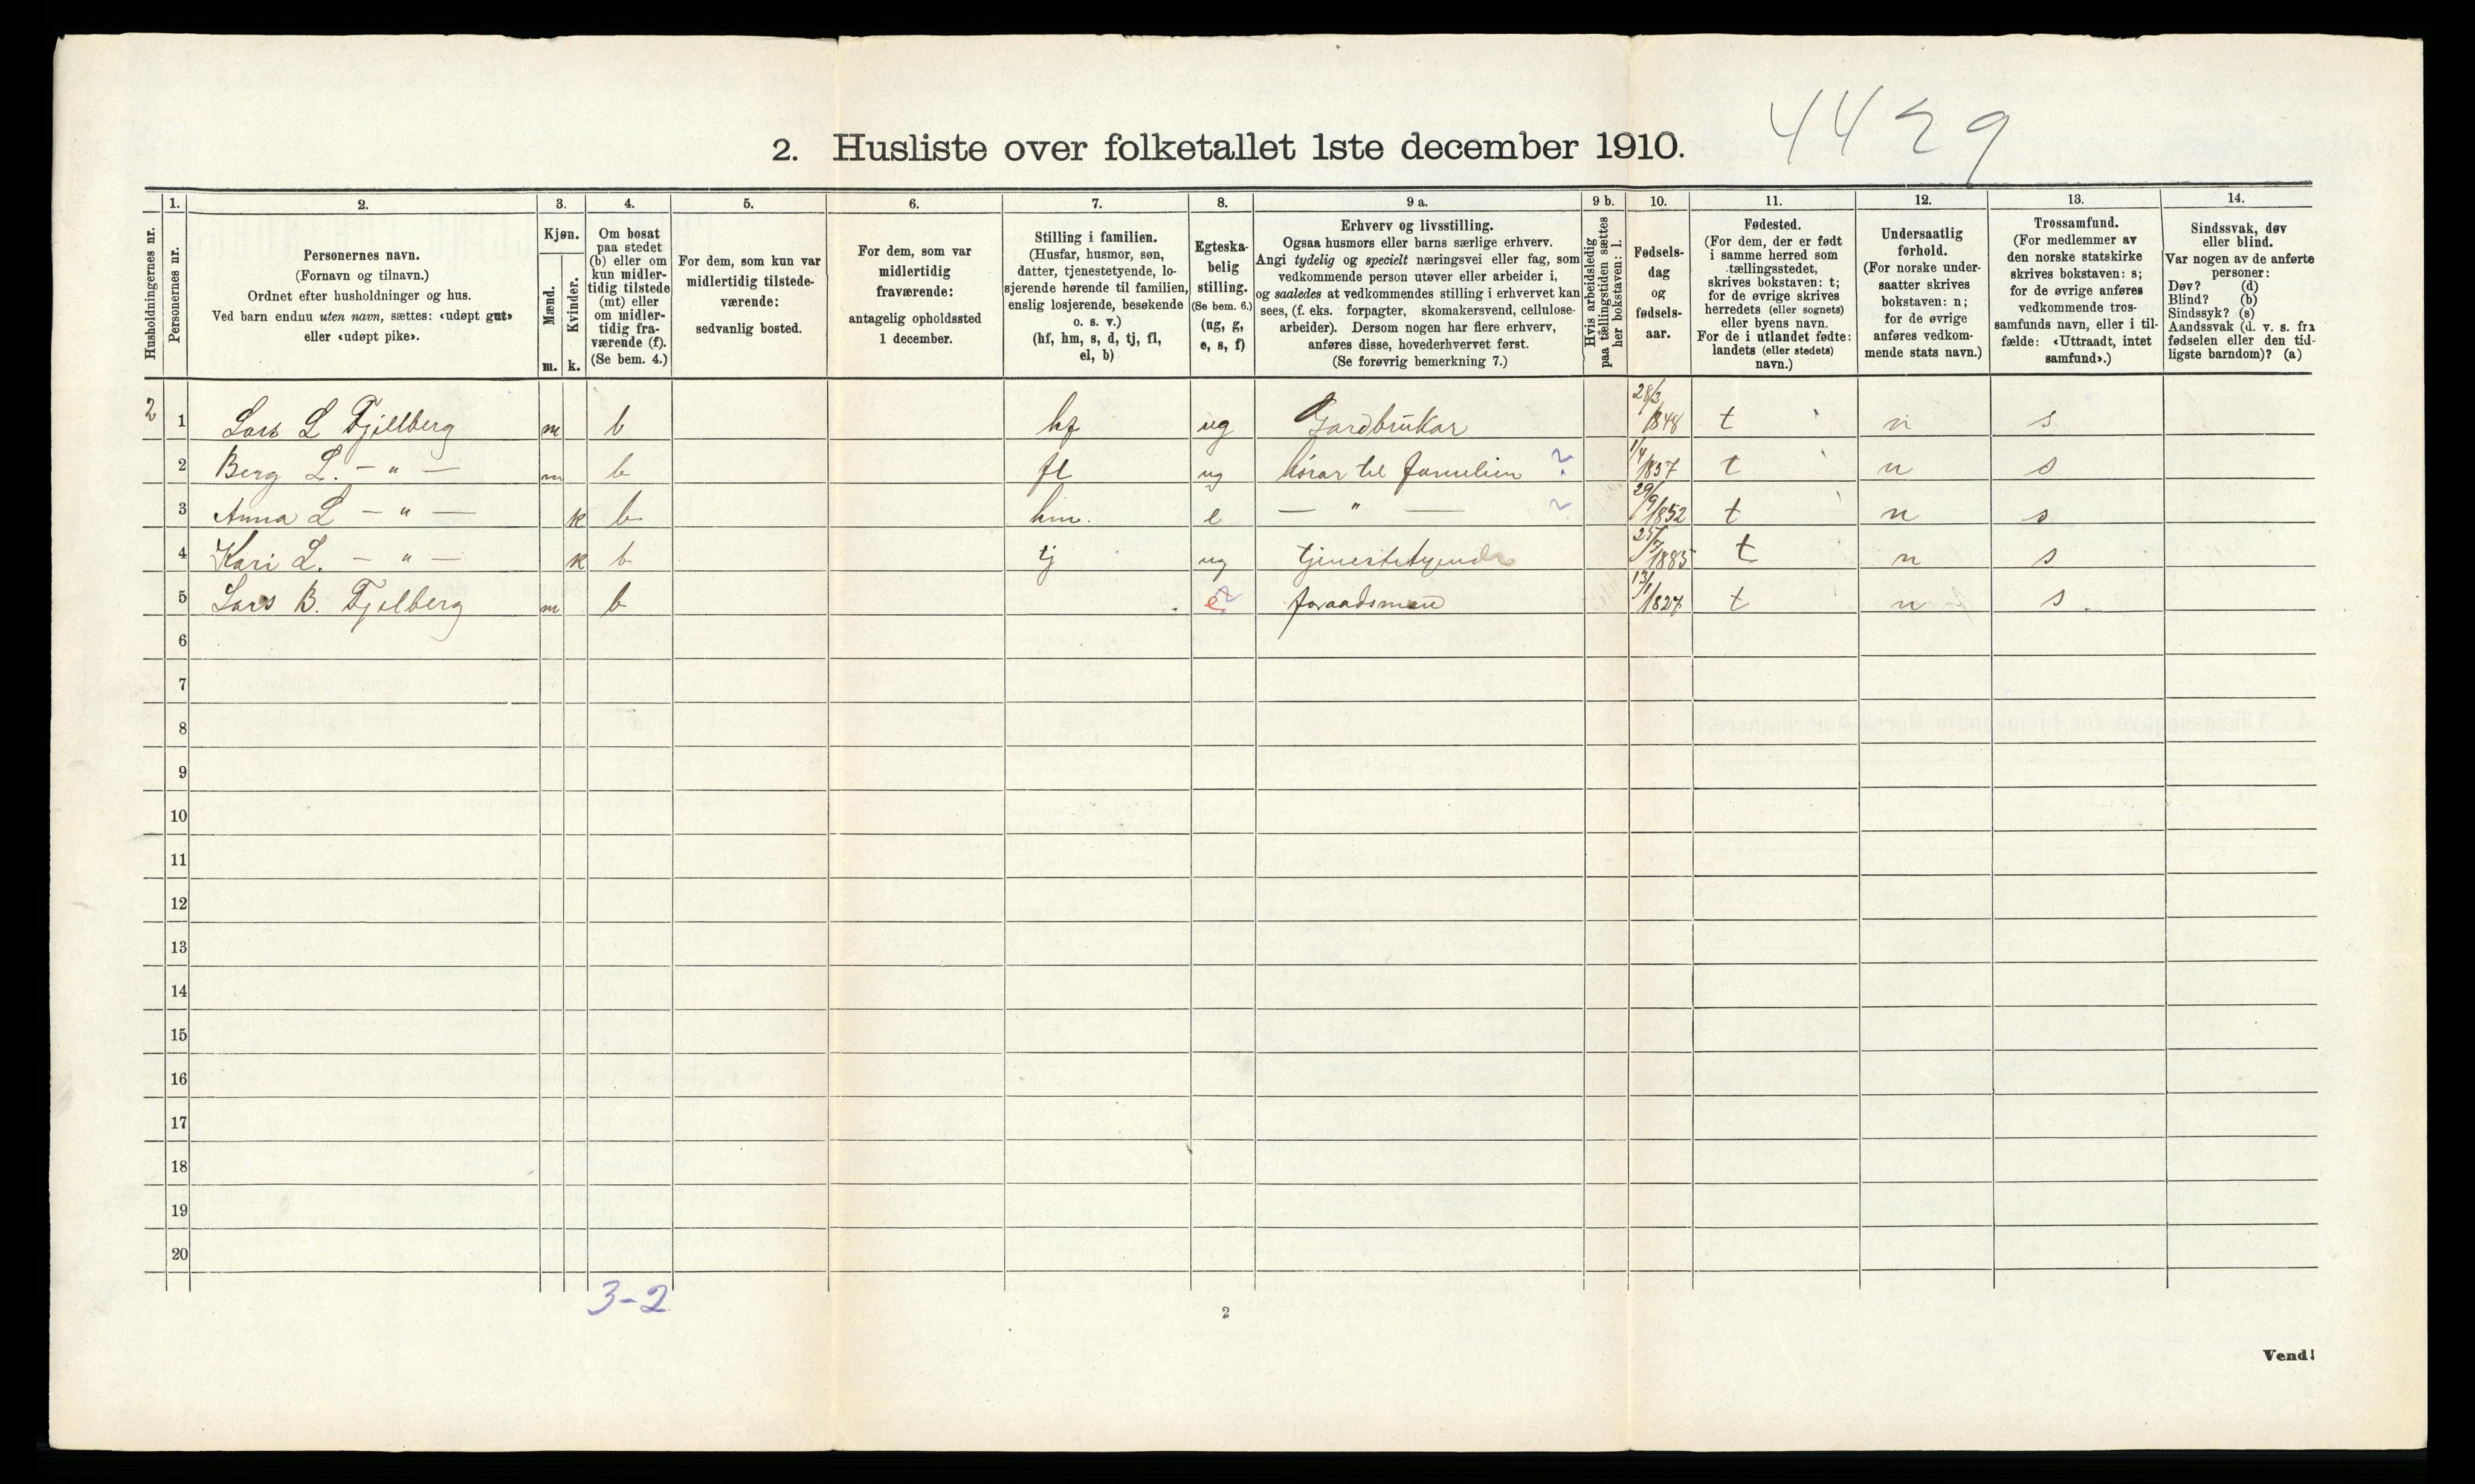 4429
2. Husliste over folketallet 1ste december 1910.
Husholdningernes nr.
1. Personernes nr.
2. Personernes navn.
(Fornavn og tilnavn.)
Ordnet efter husholdninger og hus.
Ved barn endnu uten navn, sættes: «udøpt gut»
eller «udøpt pike».
3. Kjøn.
Mænd. m.
Kvinder. k.
4. Om bosat
paa stedet
(b) eller om
kun midler-
tidig tilstede
(mt) eller
om midler-
tidig fra-
værende (f).
(Se bem. 4.)
5. For dem, som kun var
midlertidig tilstede-
værende:
sedvanlig bosted.
6. For dem, som var
midlertidig
fraværende:
antagelig opholdssted
1 december.
7. Stilling i familien.
(Husfar, husmor, søn,
datter, tjenestetyende, lo-
sjerende hørende til familien,
enslig losjerende, besøkende
o. s. v.)
(hf, hm, s, d, tj, fl,
el, b)
8. Egteska-
belig
stilling.
(Se bem. 6.)
(ug, g,
e, s, f)
9 a. Erhverv og livsstilling.
Ogsaa husmors eller barns særlige erhverv.
Angi tydelig og specielt næringsvei eller fag, som
vedkommende person utøver eller arbeider i,
og saaledes at vedkommendes stilling i erhvervet kan
sees, (f. eks. forpagter, skomakersvend, cellulose-
arbeider). Dersom nogen har flere erhverv,
anføres disse, hovederhvervet først.
(Se forøvrig bemerkning 7.)
9 b. Hvis arbeidsledig
paa tællingstiden sættes
her bokstaven: l.
10. Fødsels-
dag
og
fødsels-
aar.
11. Fødested.
(For dem, der er født
i samme herred som
tællingsstedet,
skrives bokstaven: t;
for de øvrige skrives
herredets (eller sognets)
eller byens navn.
For de i utlandet fødte:
landets (eller stedets)
navn.)
12. Undersaatlig
forhold.
(For norske under-
saatter skrives
bokstaven: n;
for de øvrige
anføres vedkom-
mende stats navn.)
13. Trossamfund.
(For medlemmer av
den norske statskirke
skrives bokstaven: s;
for de øvrige anføres
vedkommende tros-
samfunds navn, eller i til-
fælde: «Uttraadt, intet
samfund».)
14. Sindssvak, døv
eller blind.
Var nogen av de anførte
personer:
Døv? (d)
Blind? (b)
Sindssyk? (s)
Aandssvak (d. v. s. fra
fødselen eller den tid-
ligste barndom)? (a)
2 1 Lars L Fjellberg m b hf ug Gardbrukar 28/3 1848 t n s
2 Berg L. — " — m b fl ug hørar til familien ? 1/4 1857 t n s
3 Anna L — " — k b hm. e — " — ? 29/9 1852 t n s
4 Kari L. — " — k b tj ug tjenestetyende 25/7 1885 t n s
5 Lars B. Fjelberg m b e ? foraadsman 13/1 1827 t n s
6
7
8
9
10
11
12
13
14
15
16
17
18
19
20
3-2
2
Vend!